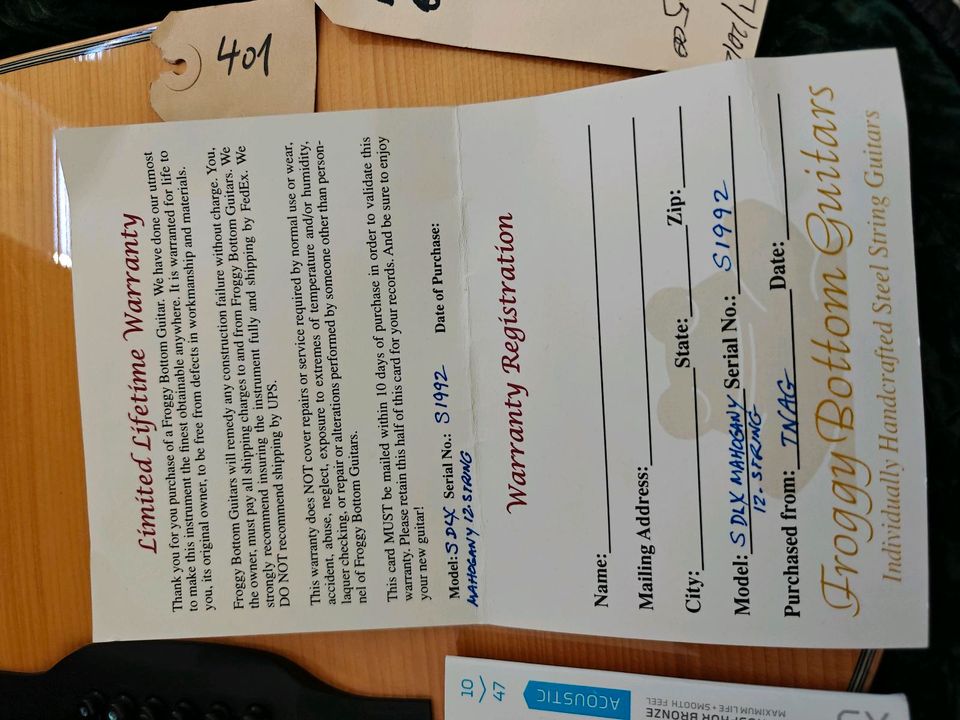 401
Limited Lifetime Warranty
Thank you for you purchase of a Froggy Bottom Guitar. We have done our utmost
to make this instrument the finest obtainable anywhere. It is warranted for life to
you, its original owner, to be free from defects in workmanship and materials.
Froggy Bottom Guitars will remedy any construction failure without charge. You,
the owner, must pay all shipping charges to and from Froggy Bottom Guitars. We
strongly recommend insuring the instrument fully and shipping by FedEx. We
DO NOT recommend shipping by UPS.
This warranty does NOT cover repairs or service required by normal use or wear,
accident, abuse, neglect, exposure to extremes of temperature and/or humidity,
laquer checking, or repair or alterations performed by someone other than person-
nel of Froggy Bottom Guitars.
This card MUST be mailed within 10 days of purchase in order to validate this
warranty. Please retain this half of this card for your records. And be sure to enjoy
your new guitar!
Model: S DLX Serial No.: S1992 Date of Purchase:
MAHOGANY 12-STRING
Warranty Registration
Name:
Mailing Address:
City: State: Zip:
Model: S DLX MAHOGANY Serial No.: S1992
12-STRING
Purchased from: TNAG Date:
Froggy Bottom Guitars
Individually Handcrafted Steel String Guitars
10
47
ACOUSTIC
BRONZE
MAXIMUM LIFE • SMOOTH FEEL